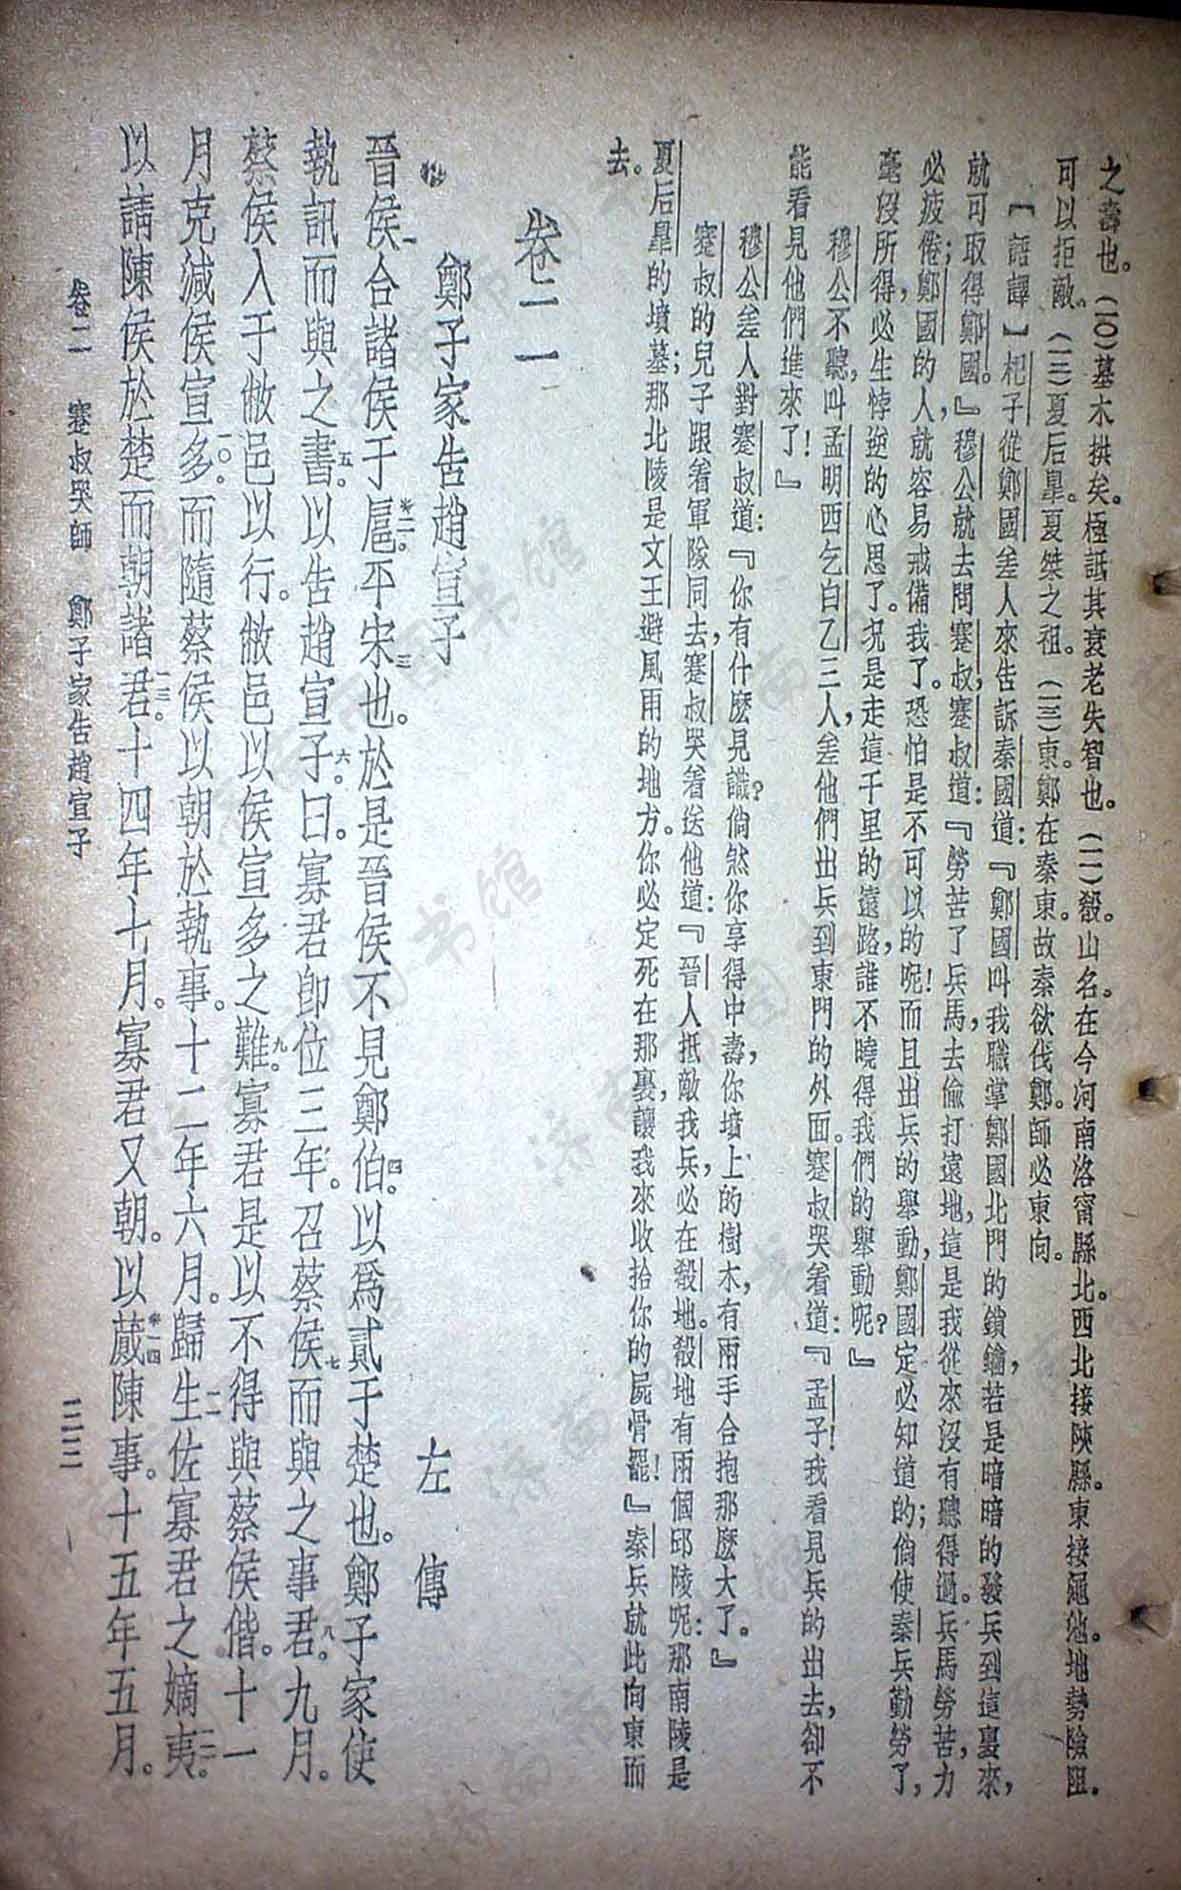 之壽也。(一〇)墓木拱矣。極詆其衰老失智也。(一一)殽。山名。在今河南洛甯縣北。西北接陝縣。東接澠池。地勢險阻。
可以拒敵。(一二)夏后皐。夏桀之祖。(一三)東。鄭在秦東。故秦欲伐鄭。師必東向。
【語譯】杞子從鄭國差人來告訴秦國道：『鄭國叫我職掌鄭國北門的鎖鑰，若是暗暗的發兵到這裏來，
就可取得鄭國。』穆公就去問蹇叔，蹇叔道：『勞苦了兵馬，去偷打遠地，這是我從來沒有聽得過。兵馬勞苦，力
必疲倦；鄭國的人，就容易戒備我了。恐怕是不可以的呢！而且出兵的舉動，鄭國定必知道的；倘使秦兵勤勞了，
毫沒所得，必生悖逆的心思了。況是走這千里的遠路，誰不曉得我們的舉動呢？』
穆公不聽，叫孟明西乞白乙三人，差他們出兵到東門的外面。蹇叔哭着道：『孟子！我看見兵的出去，卻不
能看見他們進來了！』
穆公差人對蹇叔道：『你有什麼見識？倘然你享得中壽，你墳上的樹木，有兩手合抱那麼大了。』
蹇叔的兒子跟着軍隊同去，蹇叔哭着送他道：『晉人抵敵我兵，必在殽地。殽地有兩個邱陵呢：那南陵是
夏后皐的墳墓；那北陵是文王避風雨的地方。你必定死在那裏，讓我來收拾你的屍骨罷！』秦兵就此向東而
去。
卷二
鄭子家告趙宣子
左傳
晉侯一合諸侯于扈*二。平宋三也。於是晉侯不見鄭伯四。以爲貳于楚也。鄭子家使
執訊而與之書五。以告趙宣子六。曰。寡君卽位三年。召蔡侯七而與之事君八。九月。
蔡侯入于敝邑以行。敝邑以侯宣多之難九。寡君是以不得與蔡侯偕。十一
月。克減侯宣多一〇。而隨蔡侯以朝於執事。十二年六月。歸生一一佐寡君之嫡夷一二。
以請陳侯於楚而朝諸君一三。十四年七月。寡君又朝。以蕆*一四陳事。十五年五月。
卷二 蹇叔哭師 鄭子家告趙宣子
三三